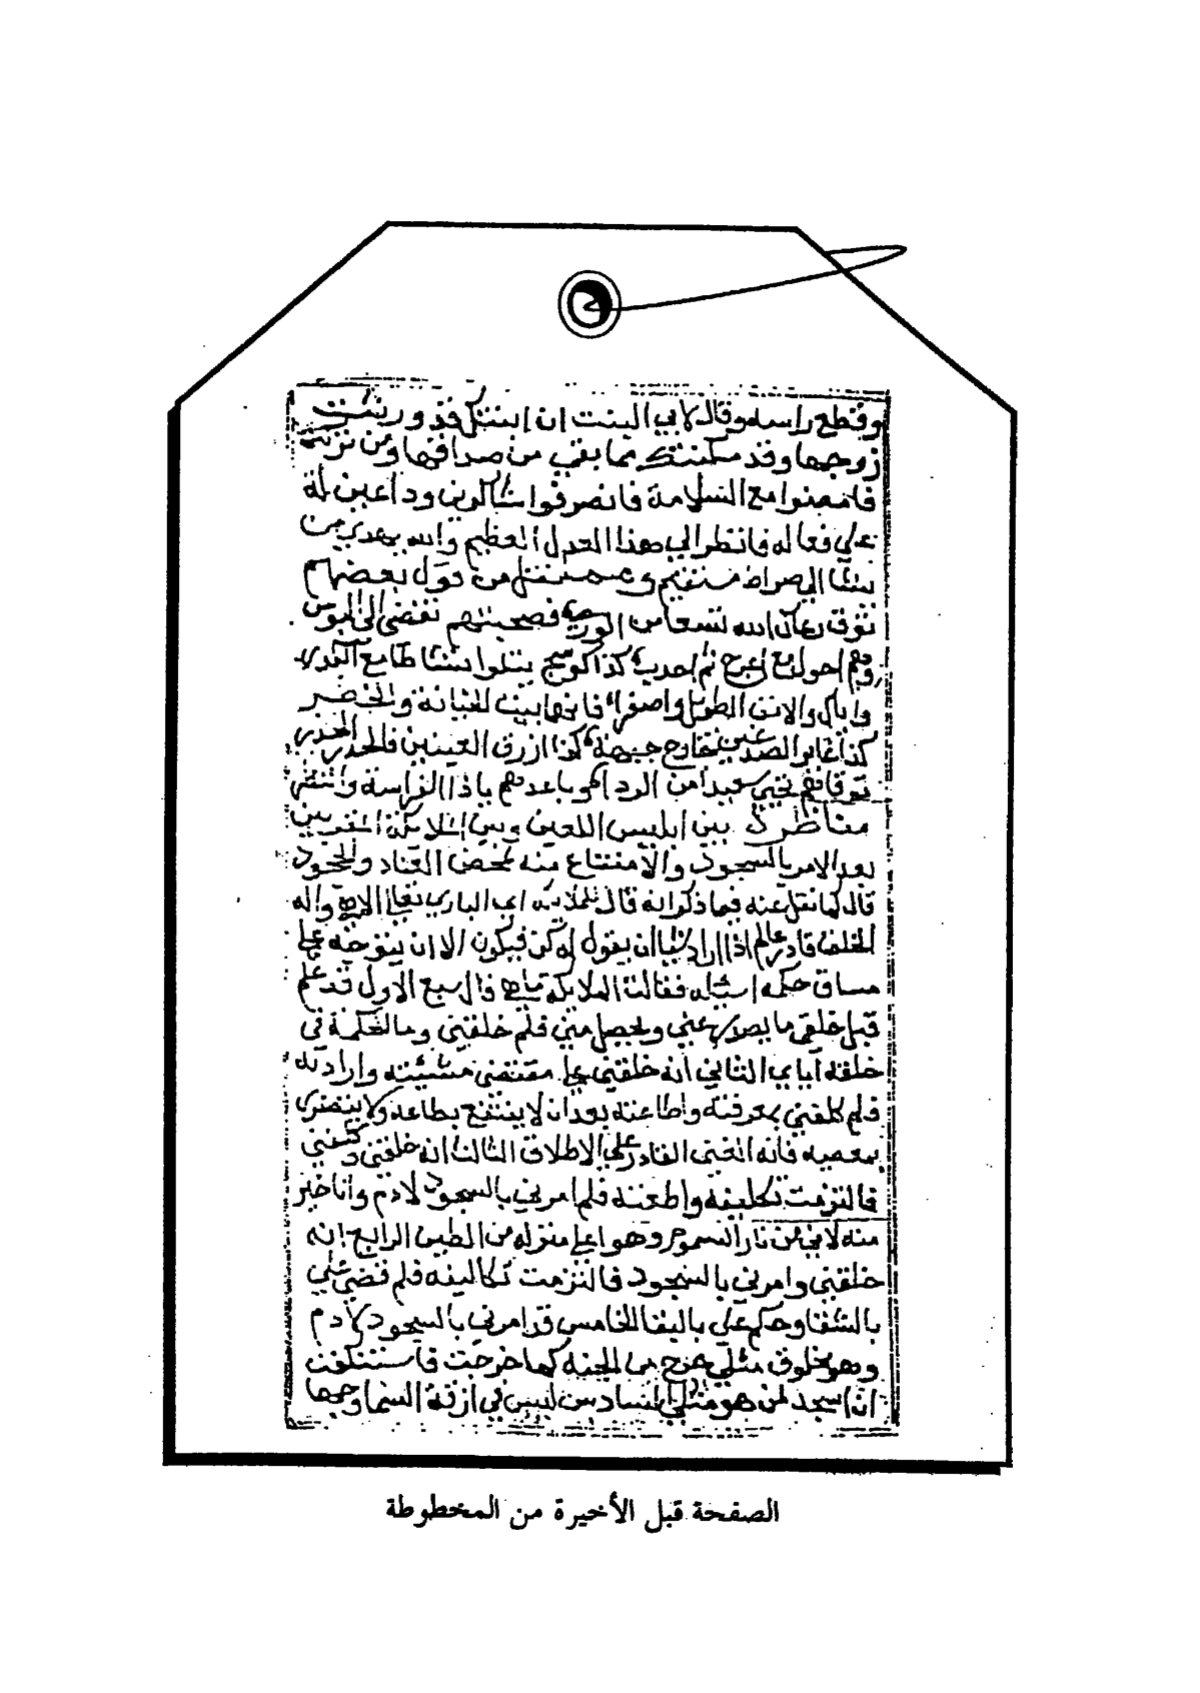 وقطع راسه وقال لابي البنت ان ابنتك قد ورثت
زوجها وقد مكنتك مما بقي من صداقها ومن تركته
فامضوا مع السلامة فانصرفوا شاكرين وداعين له
علي فعاله فانظر الي هذا العدل العظيم والله يهدي من
يشا الي صراط مستقيم من قول بعضهم
توق رعاك الله تسعا من الوري فصحبتهم تفضي الي البوس
احول مع اعرج ثم احدب كذا كوسج يتلوا مشاطا مع الكدر
واياك والانف الطويل واصفرا فانها بيت الخيانة و
كذا غاير الصدغين خارج جبهة كذا ازرق العينين فالحذر الحذر
من الردا باعدهم ياذا الفراسة
مناظرة بين ابليس اللعين وبين الملايكة المقربين
بعد الامر بالسجود والامتناع منه لمحض العناد والجحود
قال كما نقل عنه فيما ذكر انه قال للملايكة ان الباري تعالي الاهي واله
الخلق قادر عالم اذا اراد شيا ان يقول له كن فيكون الا ان يتوجه علي
مساق حكمه اسئله فقالت الملايكة ما هي قال سبع الاول قد علم
قبل خلقي ما يصدر عني ويحصل مني فلم خلقني وما الحكمة في
خلقه اياي الثاني انه خلقني علي مقتضي مشيئته وارادته
فلم كلفني بمعرفته واطاعته بعد ان لا ينتفع بطاعه ولا يتضرر
بمعصيه فانه الغني القادر علي الاطلاق الثالث انه خلقني وكلفني
فالتزمت تكليفه واطعته فلم امرني بالسجود لادم وانا خير
منه لاني من نار السموم وهو اعلي منزله من الطين الرابع انه
خلقني وامرني بالسجود فالتزمت تكاليفه فلم قضي علي
بالشقا وحكم علي بالبقا الخامس قد امرني بالسجود لادم
وهو مخلوق مثلي خرج من الجنه كما خرجت فاستنكفت
ان اسجد لمن هو مثلي السادس في ازقة السما
الصفحة قبل الأخيرة من المخطوطة